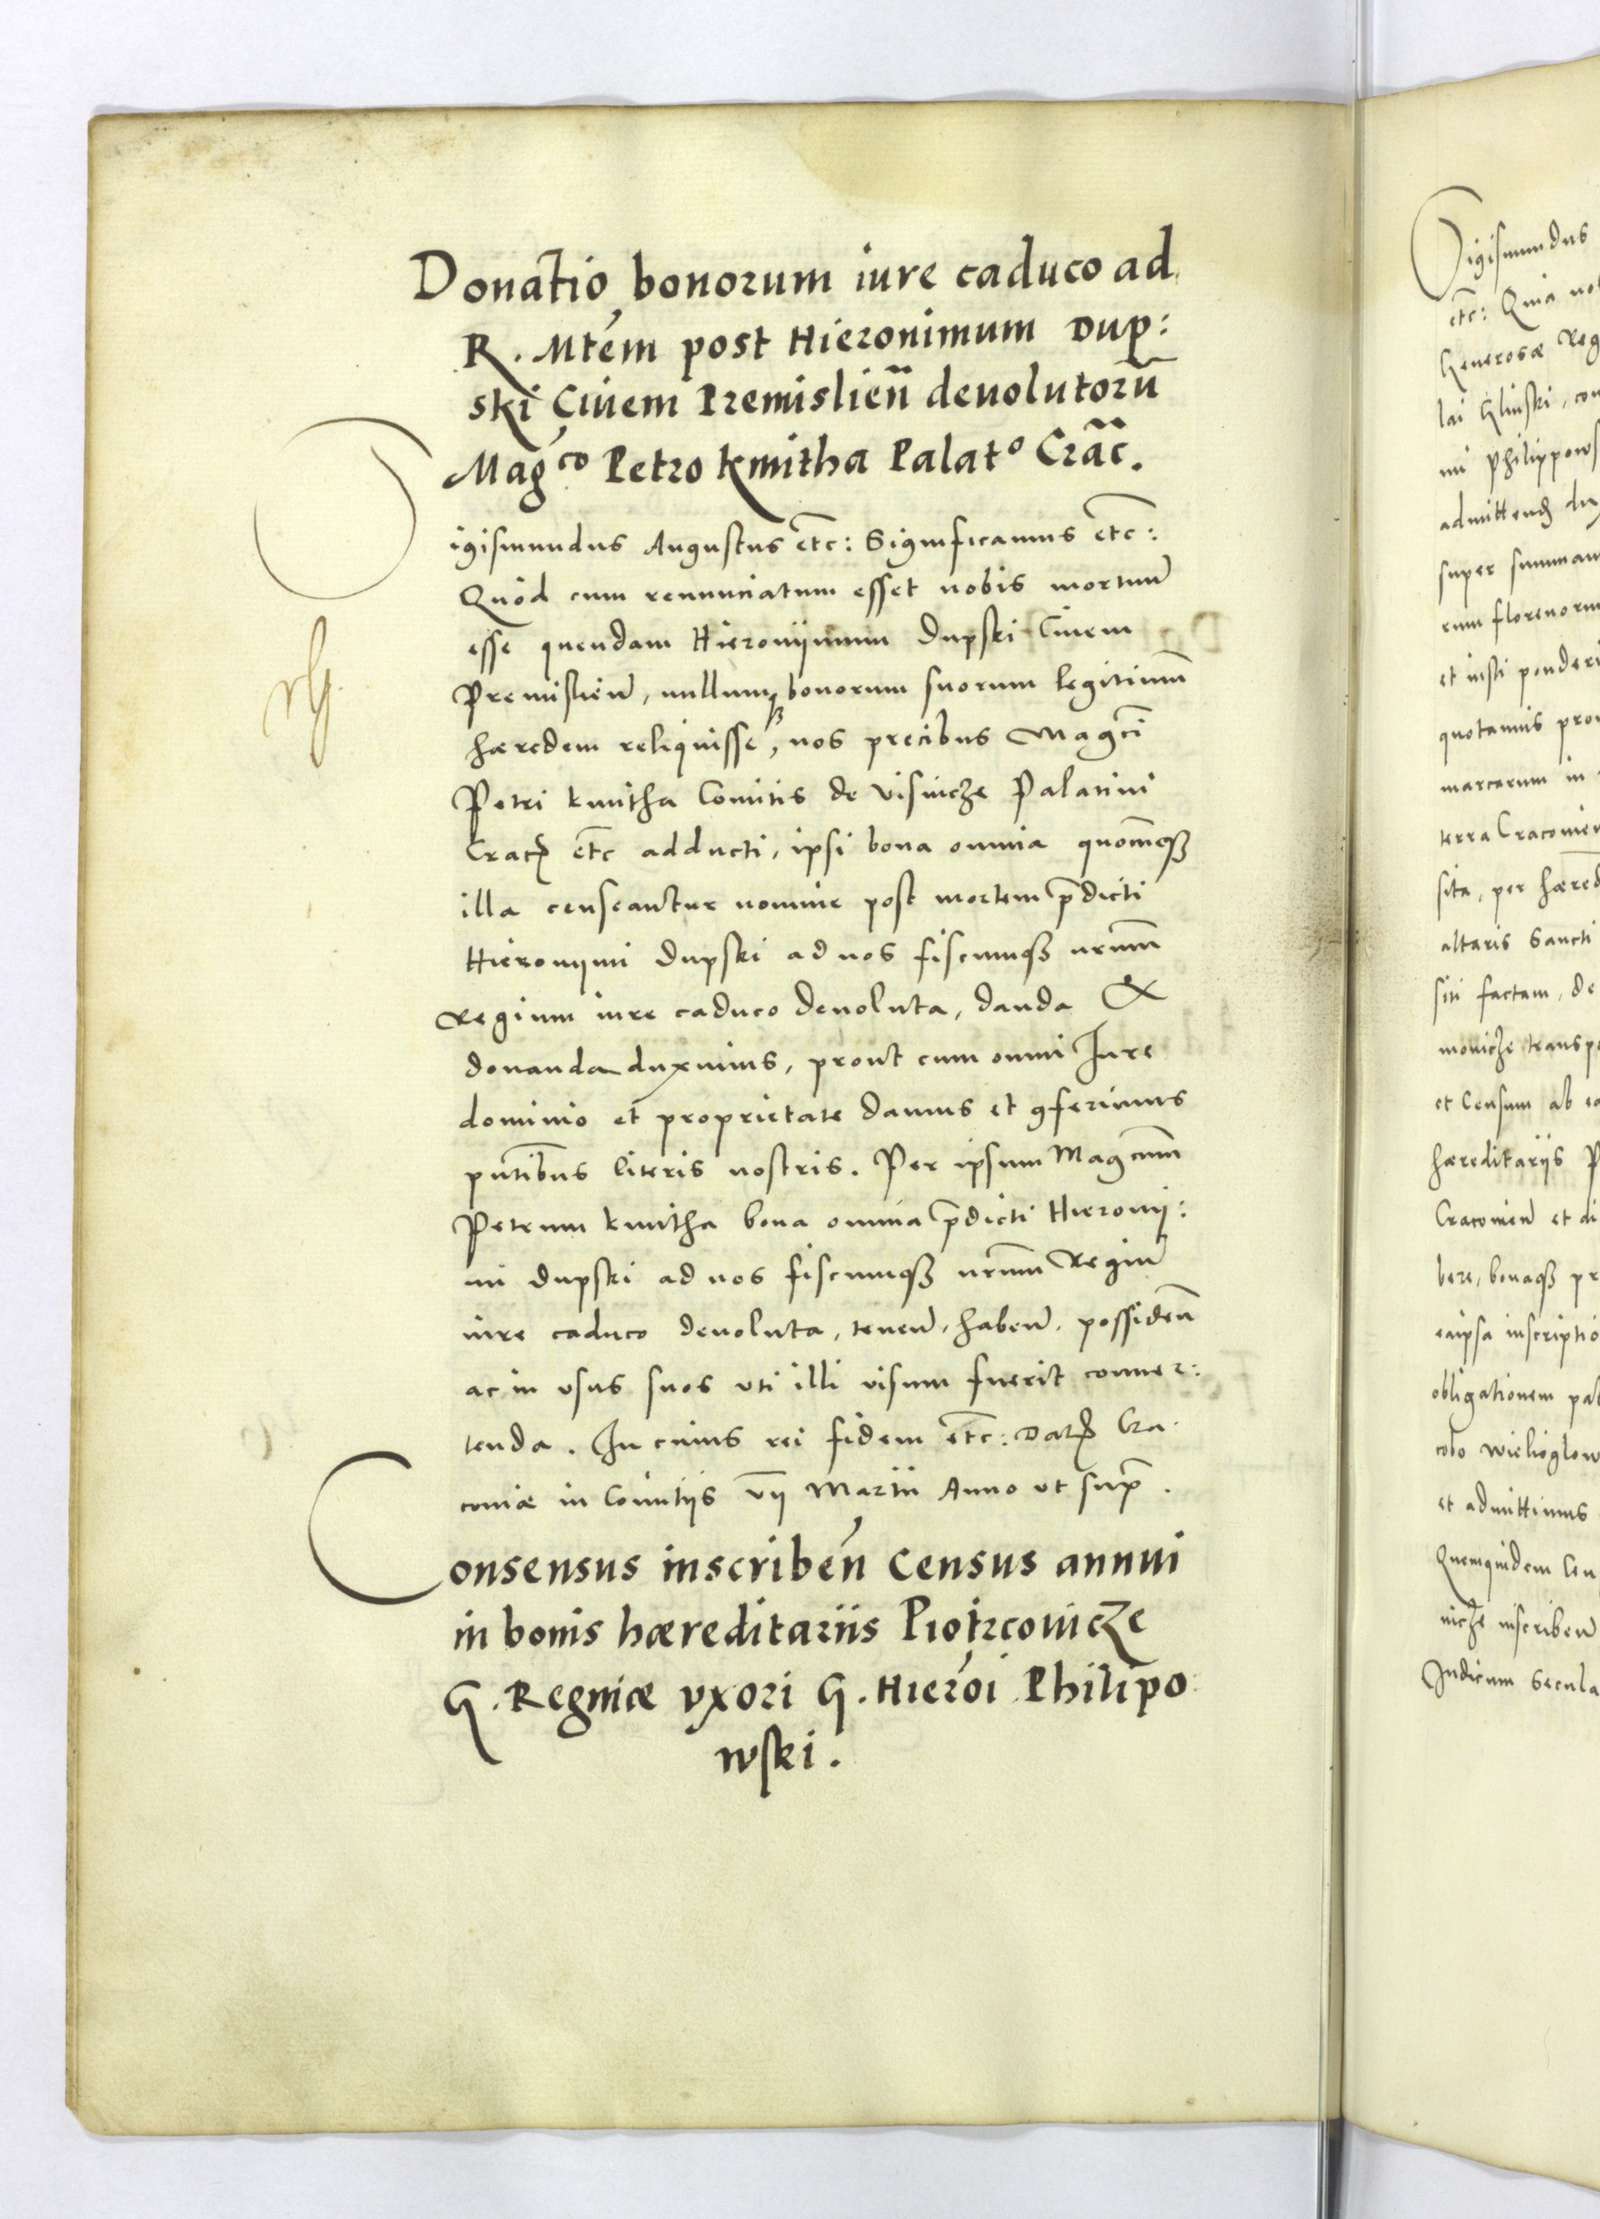 Donatio bonorum iure caduco ad
R. Mtem post Hieronimum Dup:
ski Civem Premislien̄ devolutorū
Mag^co Petro Kmitha Palat^o Crac̄.
Sigismundus Augustus etc̄: Significamus etc̄:
Quod cum renunciatum esset nobis mortuū
esse quendam Hieronymum Dupski Civem
Premislien̄, nullumqꝫ bonorum suorum legitimū
hæredem reliquisse, nos precibus Magci̅
Petri Kmitha Comitis de Visnicze Palatini
Cracꝭ etc̄ adducti, ipsi bona omnia quocūqꝫ
illa censeantur nomine post mortem p̄dicti
Hieronymi Dupski ad nos fiscumqꝫ nr̄um
Regium iure caduco devoluta, danda &
donanda duximus, prout cum omni Iure
dominio et proprietate damus et ꝯferimus
pn̄tibus literis nostris. Per ipsum Magcum̅
Petrum Kmitha bona omnia p̄dicti Hierony:
mi Dupski ad nos fiscumqꝫ nr̄um Regiū
iure caduco devoluta, tenen̄, haben̄, possiden̄
ac in usus suos uti illi visum fuerit conver:
tenda. In cuius rei fidem etc̄: Datꝭ Cra
coviæ in Comitiis vii Martii Anno ut sup̄.
Consensus inscriben̄ Census annui
in bonis hæreditariis Piotrcovicze
G. Regniæ uxori G. Hieroi̅ Philipo
wski.
Sigismundus
etc̄: Quia no
Generosæ Reg
lai Glinski, con
mi Philippows
super summam
rum florenoru
et iusti ponderi
quotannis prov
marcarum in
terra Cracovien
sita, per hæred
altaris Sancti
siti factam, de
movicze transp
et Censum ab ea
hæreditariis P
Cracovien̄ et di
bere, bonaqꝫ pr
eaipsa inscriptio
obligationem pat
cobo Wielioglow
et admittimus
Quemquidem Cen
vicze inscriben̄
Iudicum Secula